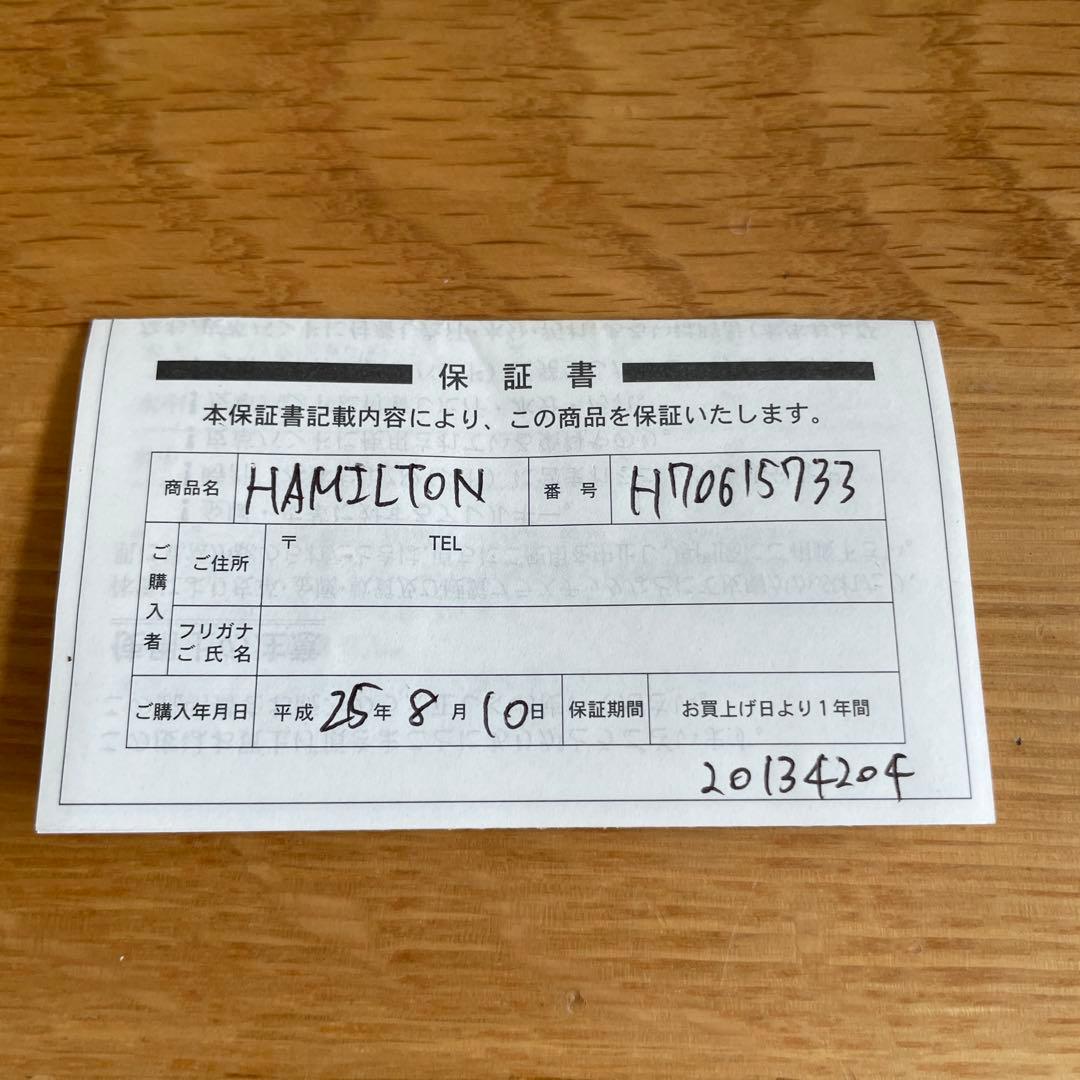 保証書
本保証書記載内容により、この商品を保証いたします。
商品名 HAMILTON 番号 H70615733
ご購入者
ご住所 〒 TEL
フリガナ
ご氏名
ご購入年月日 平成25年8月10日 保証期間 お買上げ日より1年間
20134204